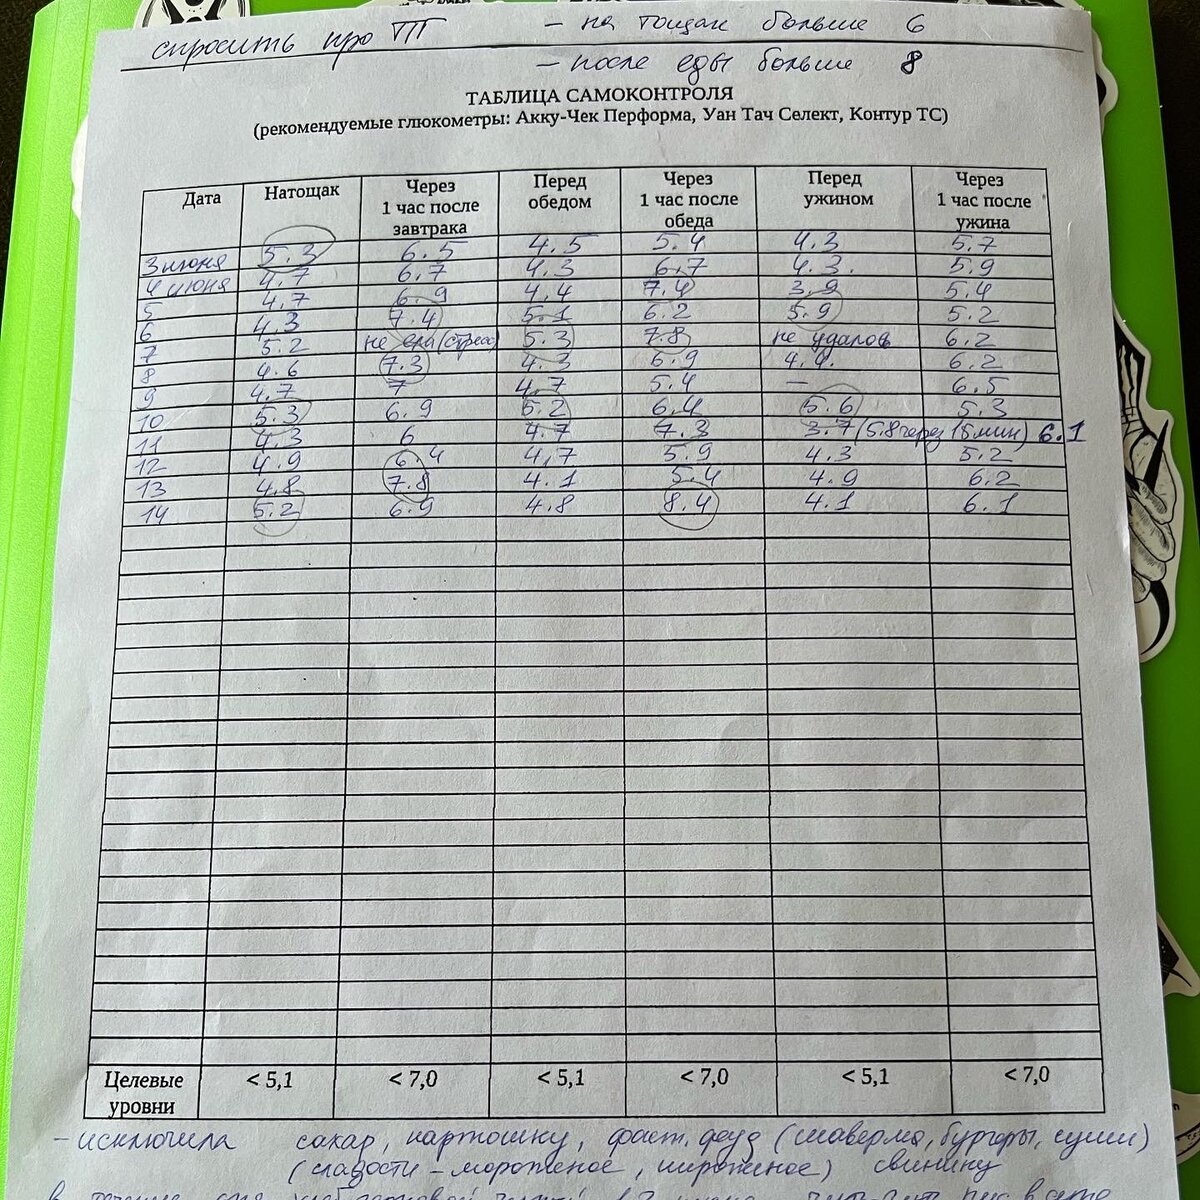 спросить про ТТГ — на тощак больше 6
— после еды больше 8
ТАБЛИЦА САМОКОНТРОЛЯ
(рекомендуемые глюкометры: Акку-Чек Перформа, Уан Тач Селект, Контур ТС)
Дата Натощак Через 1 час после завтрака Перед обедом Через 1 час после обеда Перед ужином Через 1 час после ужина
3 июня 5.3 6.5 4.5 5.4 4.3 5.7
4 июня 4.7 6.7 4.3 6.7 4.3. 5.9
5 4.7 6.9 4.4 7.4 3.9 5.4
6 4.3 7.4 5.1 6.2 5.9 5.2
7 5.2 не ела (стресс) 5.3 7.8 не удалось 6.2
8 4.6 7.3 4.3 6.9 4.4. 6.2
9 4.7 7 4.7 5.4 — 6.5
10 5.3 6.9 5.2 6.4 5.6 5.3
11 4.3 6 4.7 7.3 3.7 (5.8 через 15 мин) 6.1
12 4.9 6.4 4,7 5.9 4.3 5.2
13 4.8 7.8 4.1 5.4 4.9 6.2
14 5.2 6.9 4.8 8.4 4.1 6.1
Целевые уровни < 5,1 < 7,0 < 5,1 < 7,0 < 5,1 < 7,0
– исключила сахар, картошку, фаст.фуд (шаверма, бургеры, суши)
(сладости – мороженое, пирожное) свинину
в течение дня